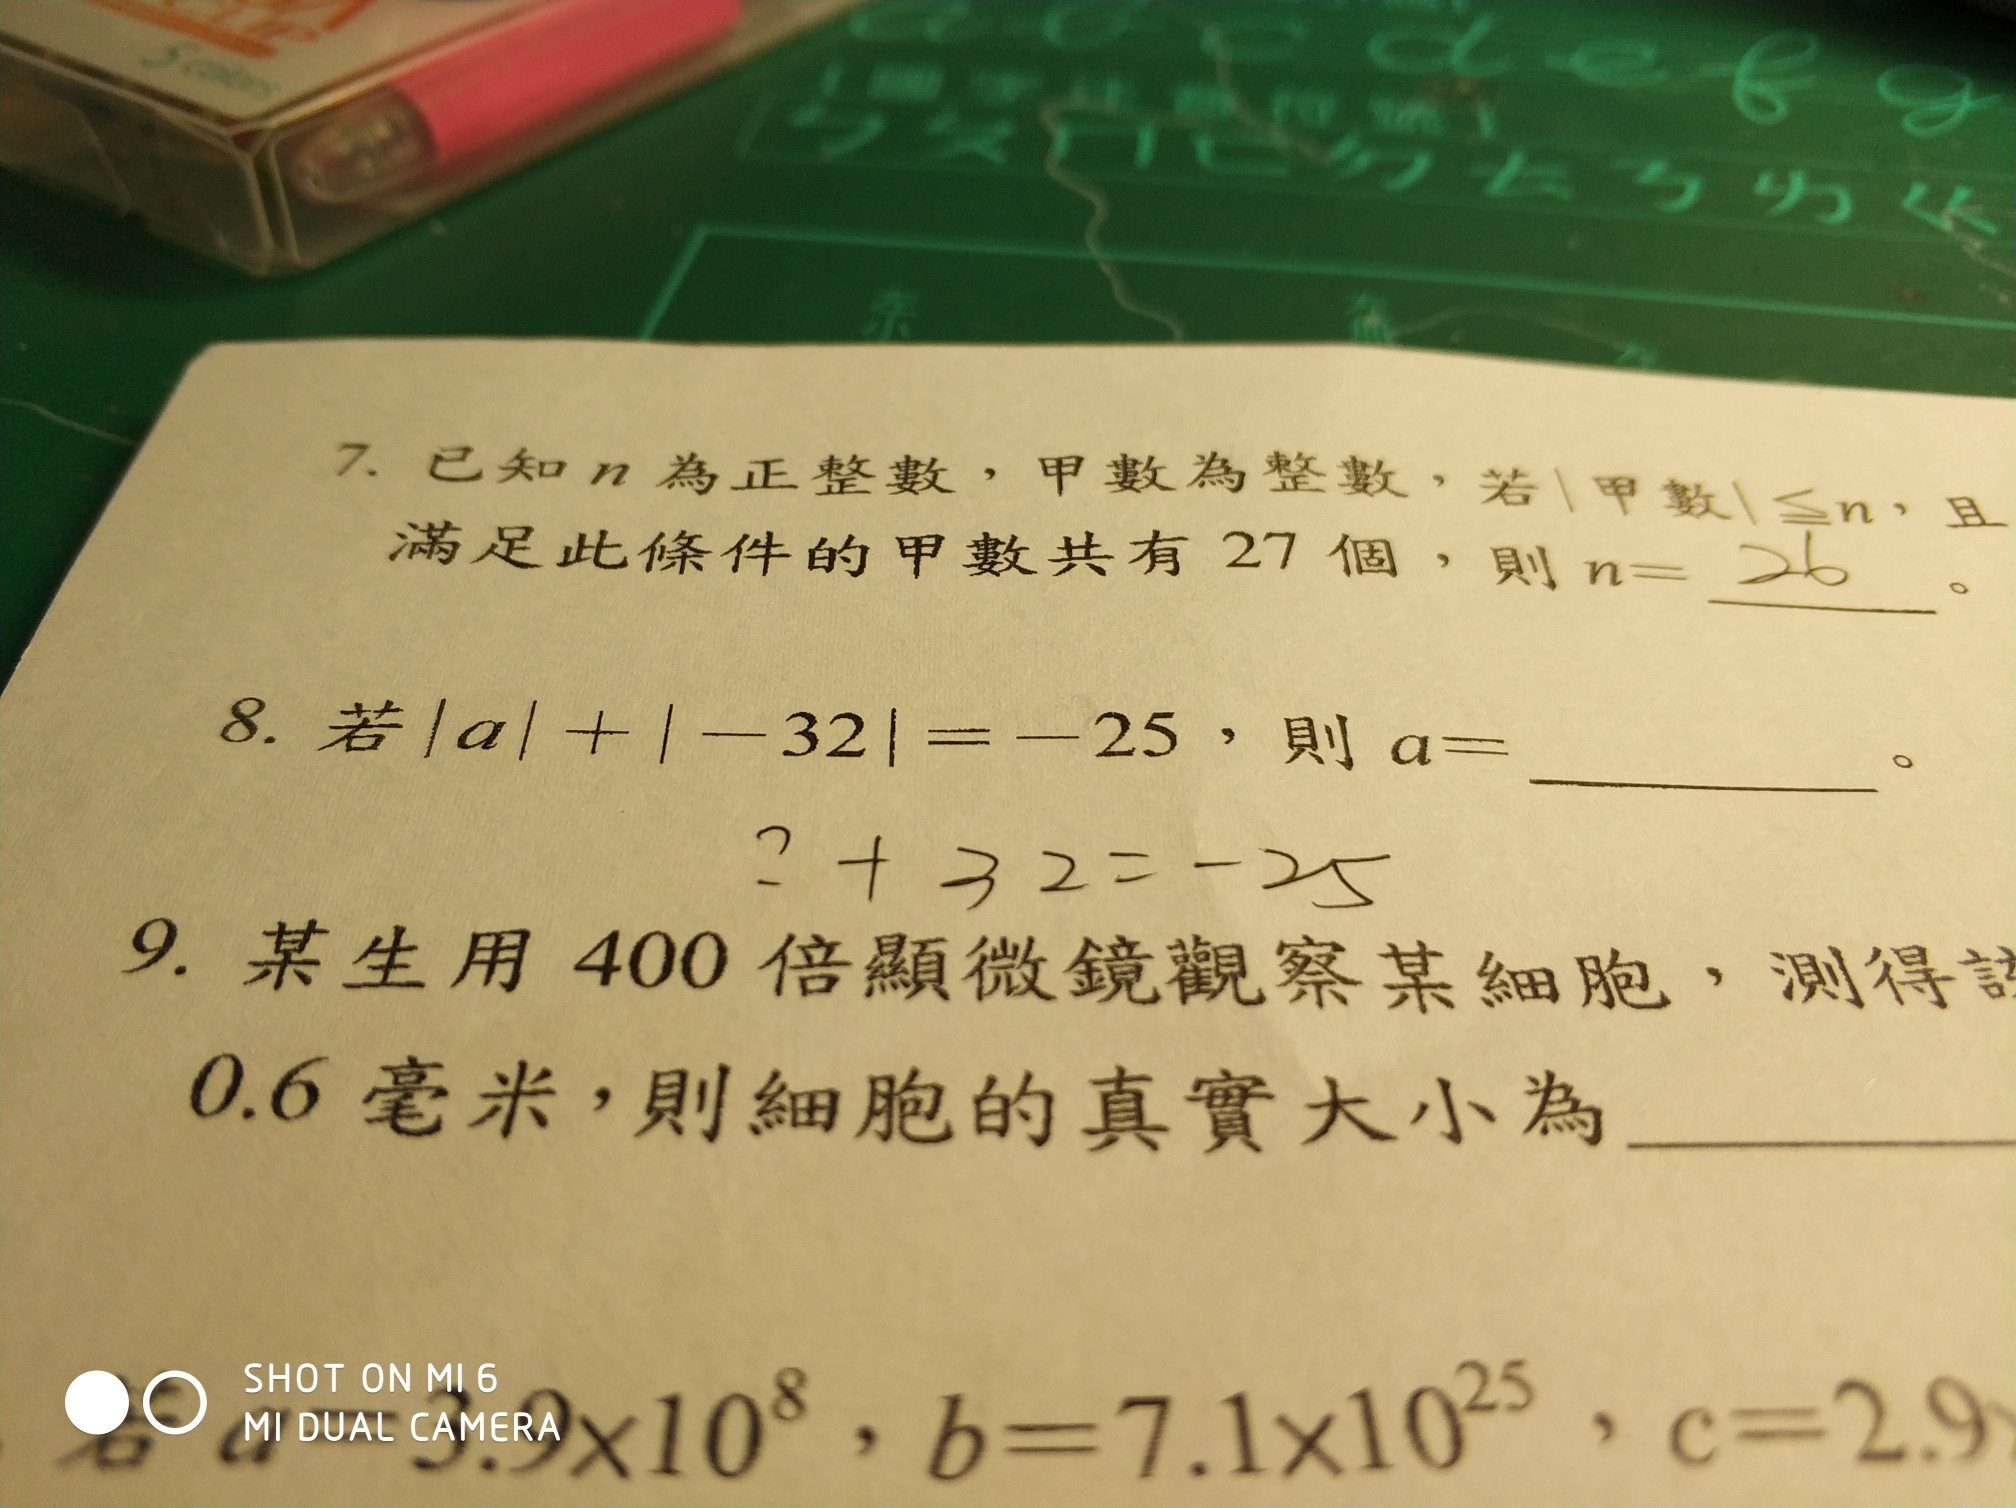 5 colors
a b c d e f g
ㄅㄆㄇㄈㄉㄊㄋㄌㄍ
7. 已知 n 為正整數，甲數為整數，若|甲數|≦n，且
滿足此條件的甲數共有 27 個，則 n= 26 。
8. 若|a|+|-32|=-25，則 a= 。
? + 32=-25
9. 某生用 400 倍顯微鏡觀察某細胞，測得該
0.6 毫米，則細胞的真實大小為
若 a=3.9x10⁸，b=7.1x10²⁵，c=2.9x
SHOT ON MI 6
MI DUAL CAMERA